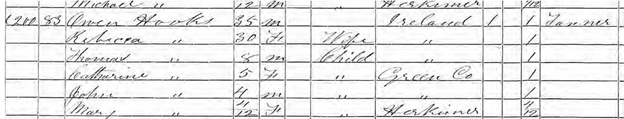 Michael " 12 m " Herkimer 4/12
1200 83 Owen Hooks 35 m Ireland 1 1 Tanner
Rebecca " 30 F Wife " 1
Thomas " 8 m Child " 1
Catharine " 5 F " Green Co 1
John " 4 m " " 1
Mary " 4/12 F " Herkimer 4/12